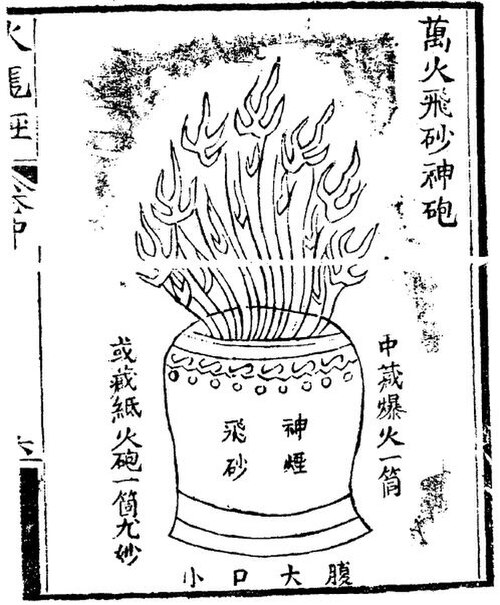 萬火飛砂神砲
中藏爆火一筒
神煙
飛砂
小口大腹
或藏紙火砲一箇尤妙
火龍經 卷中